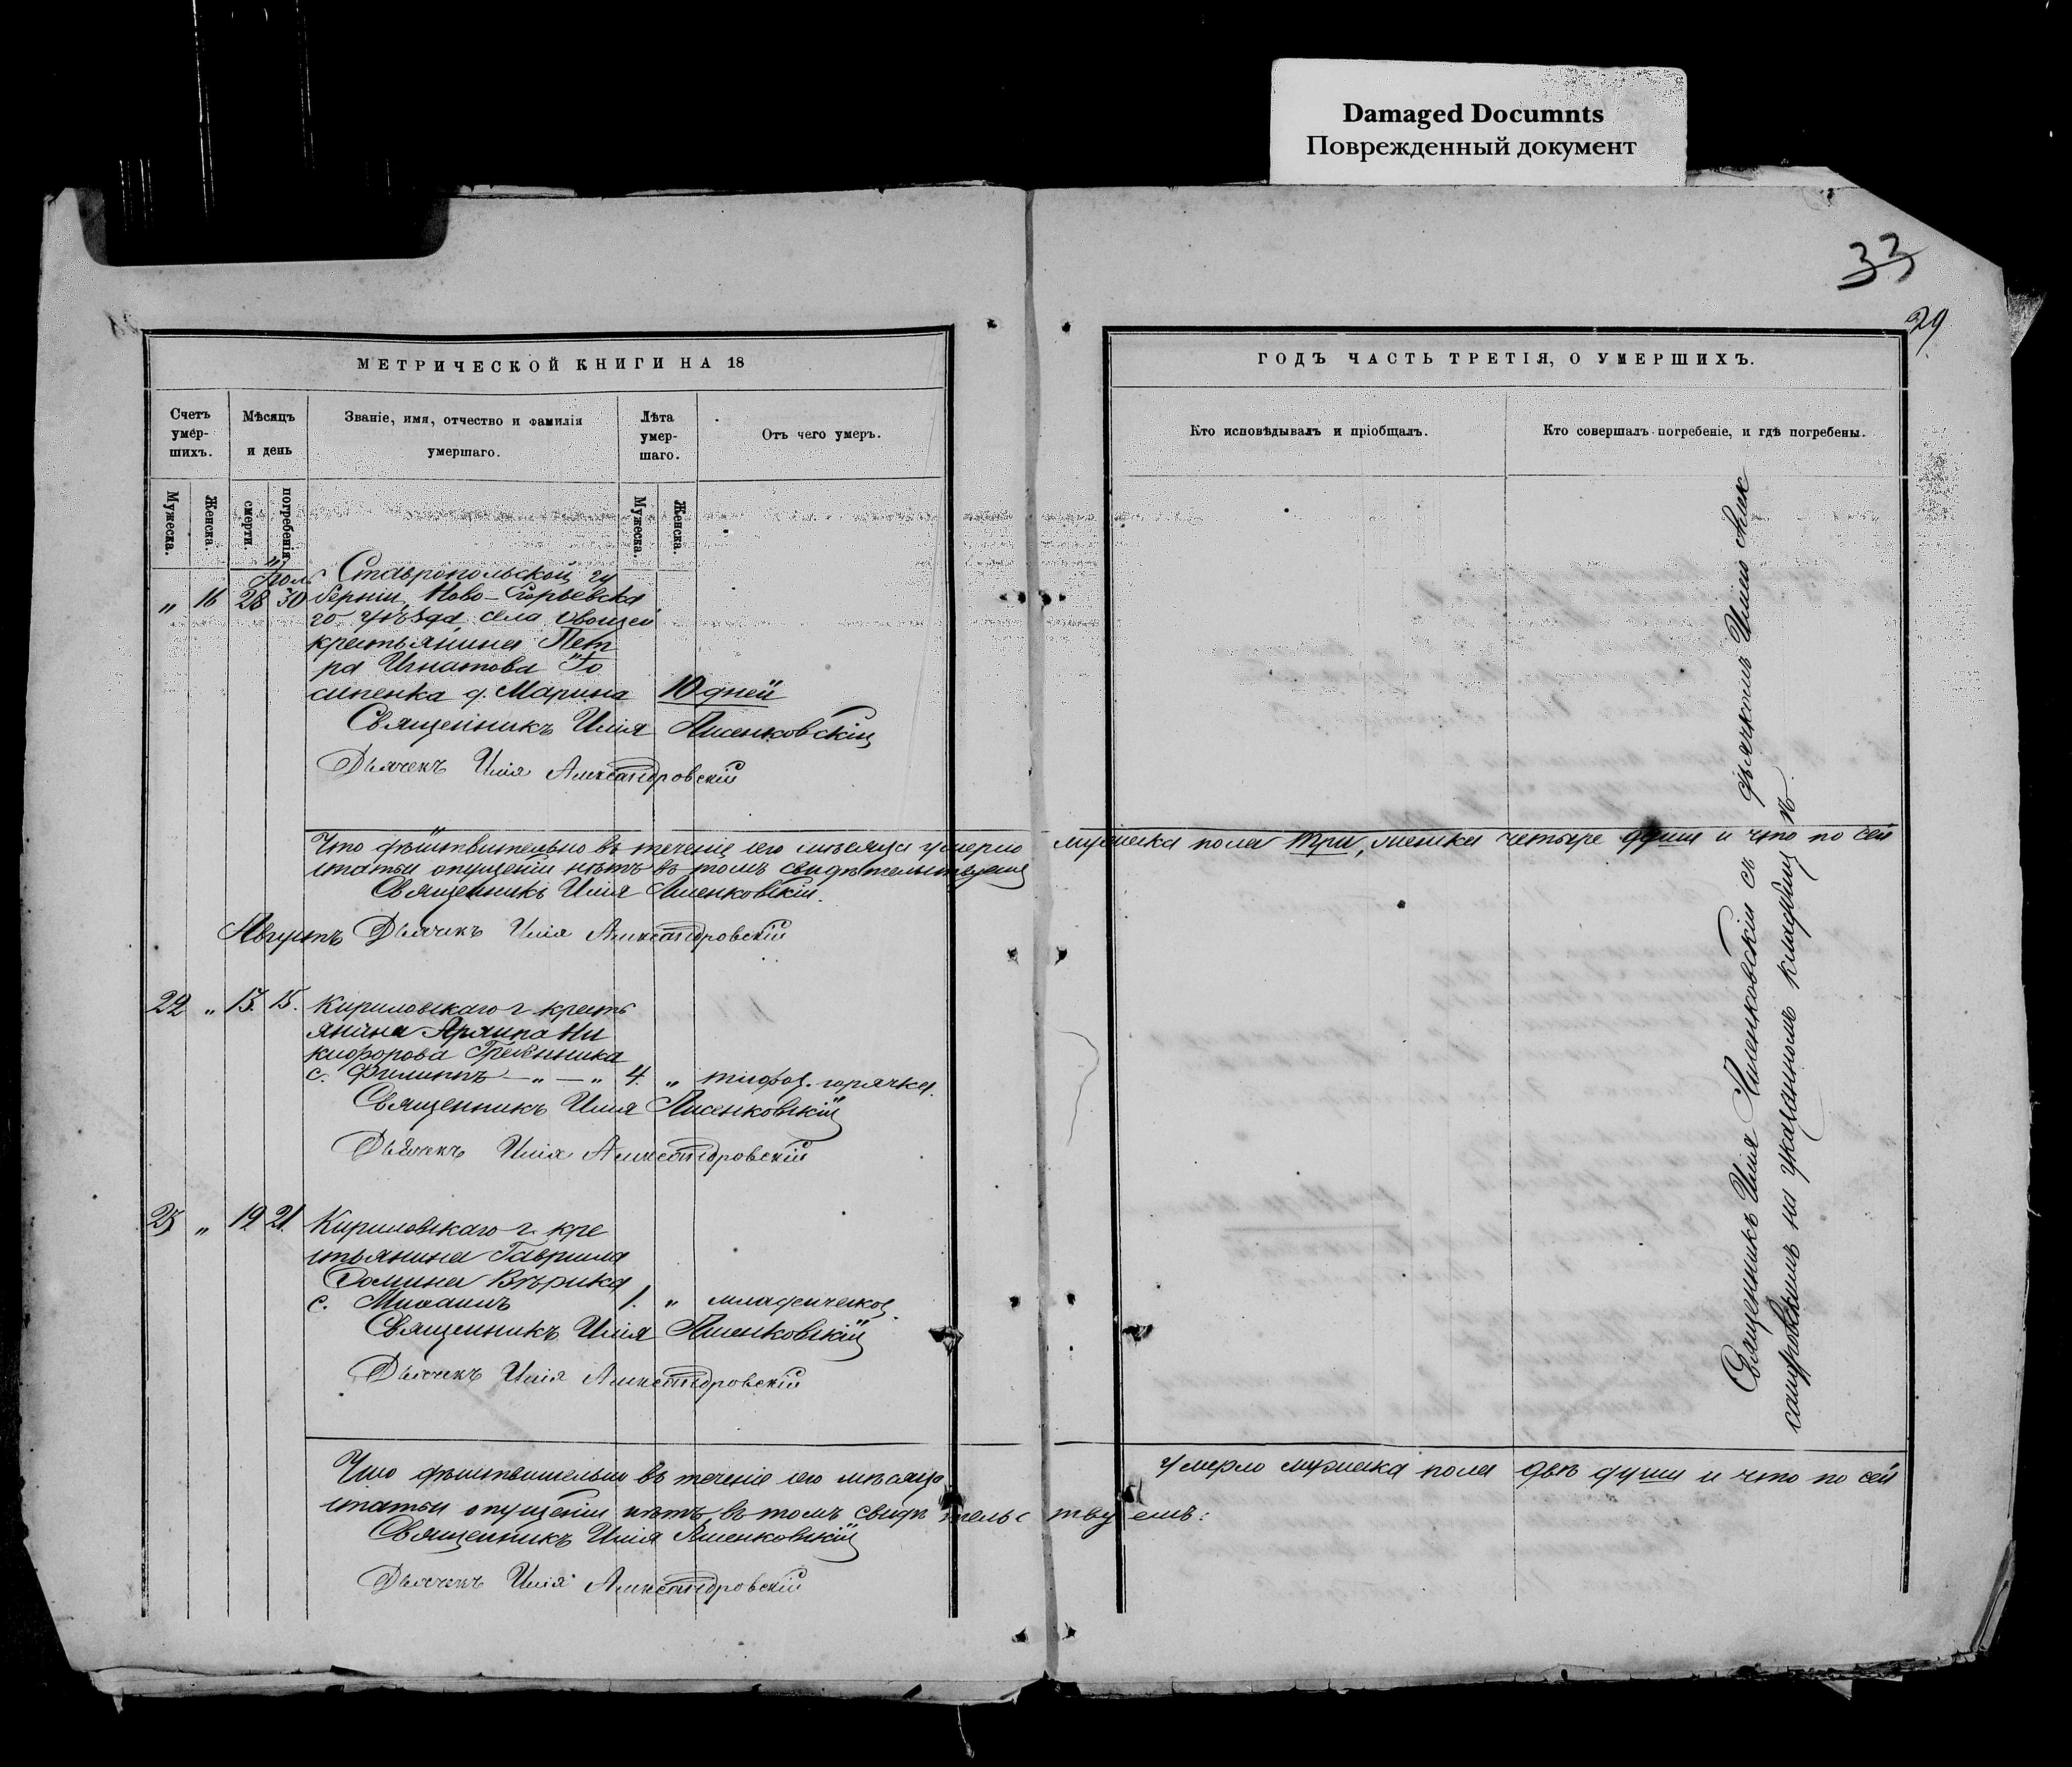 Damaged Documnts
Поврежденный документ
33
29
МЕТРИЧЕСКОЙ КНИГИ НА 18
Счетъ умер-
шихъ.
Мѣсяцъ
и день
Званіе, имя, отчество и фамилія
умершаго.
Лѣта
умер-
шаго.
Отъ чего умеръ.
Мужеска.
Женска.
смерти.
погребенія
Мужеска.
Женска.
Ставропольской гу
„ 16 28 30 берніи, Ново-Горьевска
го уѣзда села Овощей
крестьянина Пет
ра Игнатова
сипенка д. Марина 10 дней
Священникъ Илія Лисенковскій
Дьячекъ Илія Александровскій
Что дѣйствительно въ теченіе сего мѣсяца умерло
статьи опущеній нѣтъ въ томъ свидѣтельствуемъ
Священникъ Илія Лисенковскій.
Августъ Дьячекъ Илія Александровскій
22 „ 13. 15. Кириловскаго г. кресть
янина Архипа Ни
кифорова Гребенника
с. Филиппъ — „ — „ 4. „ тифоз. горячка.
Священникъ Илія Лисенковскій
Дьячекъ Илія Александровскій
23 „ 19 21. Кириловскаго г. кре
стьянина Гавриила
Фомина
с. Михаилъ 1. „ младенческой.
Священникъ Илія Лисенковскій
Дьячекъ Илія Александровскій
Что дѣйствительно въ теченіе сего мѣсяца
статьи опущеній нѣтъ, въ томъ свидѣтельствуемъ:
Священникъ Илія Лисенковскій
Дьячекъ Илія Александровскій
ГОДЪ ЧАСТЬ ТРЕТІЯ, О УМЕРШИХЪ.
Кто исповѣдывалъ и пріобщалъ.
Кто совершалъ погребеніе, и гдѣ погребены.
мужеска пола три, женска четыре души и что по сей
Священникъ Илія Лисенковскій съ дьячкомъ Иліею Алек
сандровскимъ на указанномъ кладбищѣ.
умерло мужеска пола двѣ души и что по сей